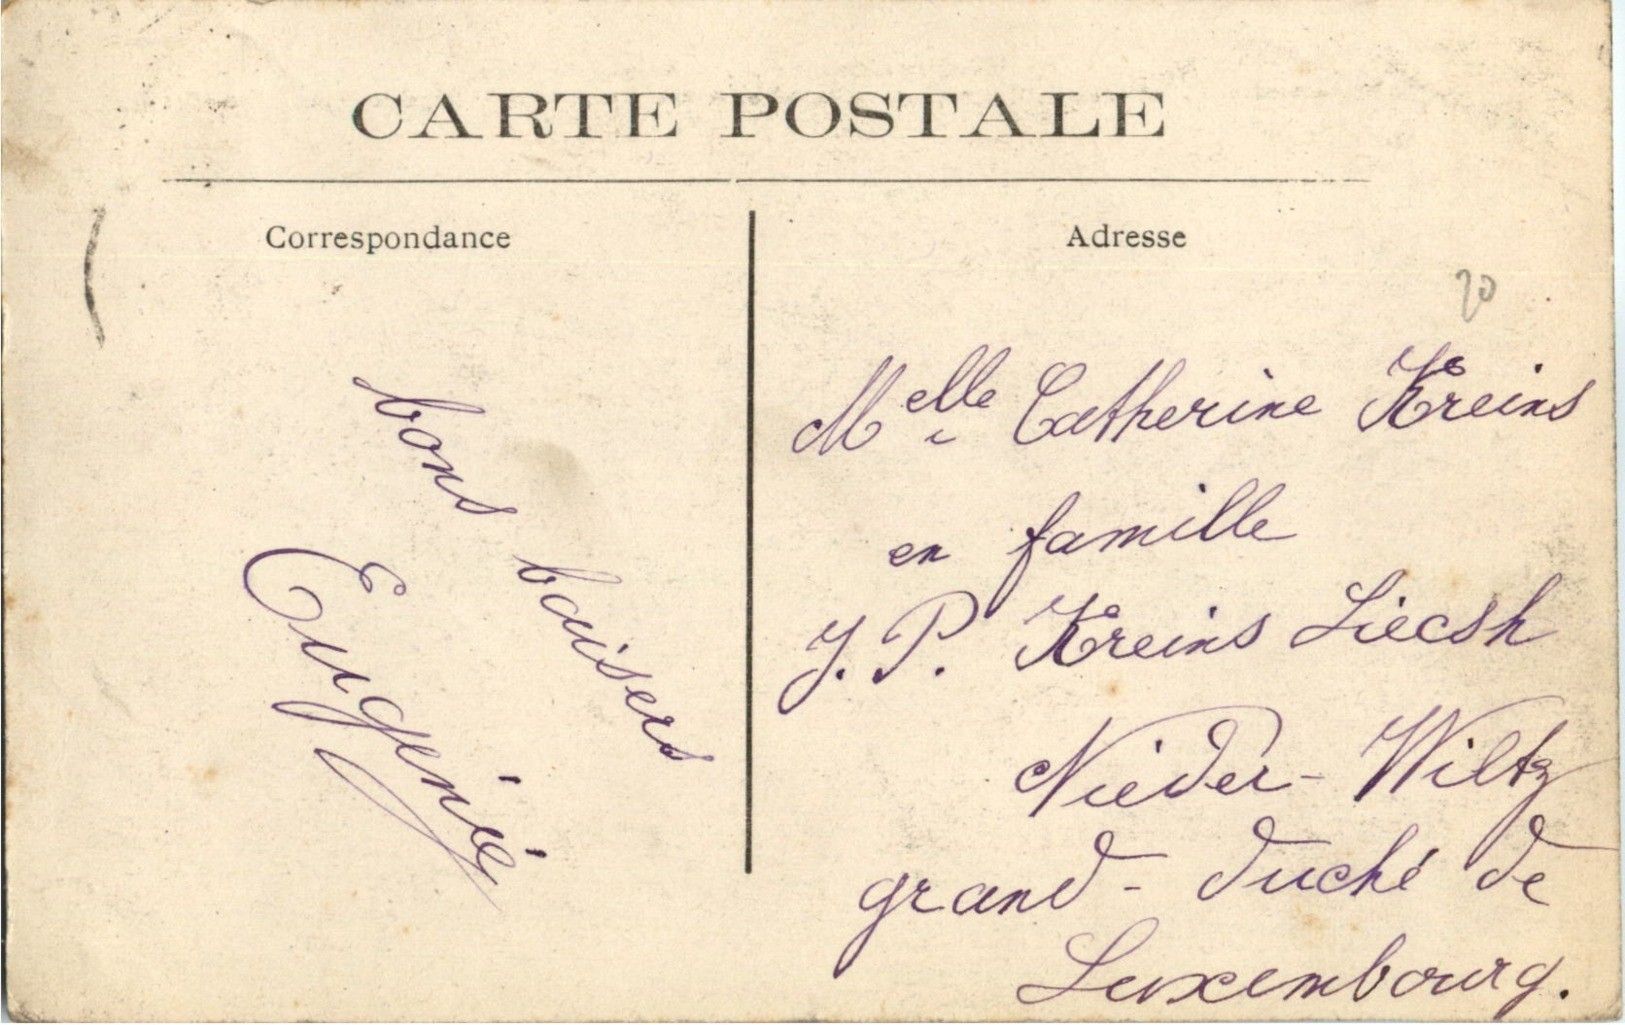 CARTE POSTALE
Correspondance
bons baisers
Eugénie
Adresse
20
Melle Catherine Kreins
en famille
J. P. Kreins Liecsh
Nieder-Wiltz
grand-duché de
Luxembourg.